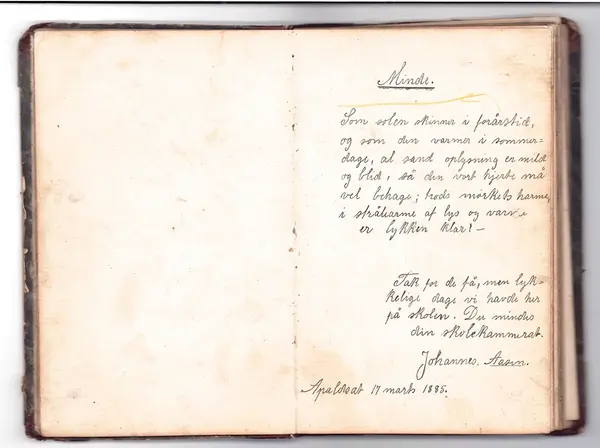 Minde.
Som solen skinner i forårstid,
og som den varmer i sommer-
dage, al sand oplysning er mild
og blid, så den vort hjerte må
vel behage; trods mørkets harme,
i strålearme af lys og varme
er lykken klar! —
Tak for de få, men lyk-
kelige dage vi havde her
på skolen. Du mindes
din skolekammerat.
Johannes. Aasen.
17 marts 1885.